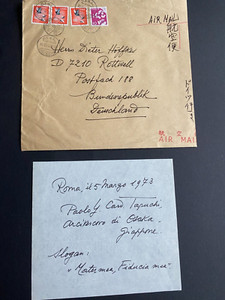 AIR MAIL
航空便
Herrn Dieter Höffles
D 7210 Rottweil
Postfach 188
Bundesrepublik
Deutschland
AIR MAI
Roma, il 5 Marzo 1973
Paolo Y Card. Taguchi
Arcivescovo di Osaka
Giappone.
Slogan:
"Mater mea, Fiducia mea"